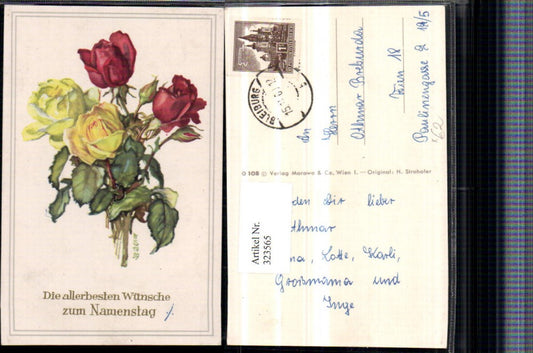 Die allerbesten Wünsche
zum Namenstag
BLEIBURG
An
Herrn
Othmar
Wien 18
Paulinengasse 9 19/5
62
0 108 © Verlag Marowa & Co. Wien I. – Original: H. Strohofer
Artikel Nr.
323565
den Dir lieber
Othmar
ma, Lotte, Karli,
Großmama und
Inge